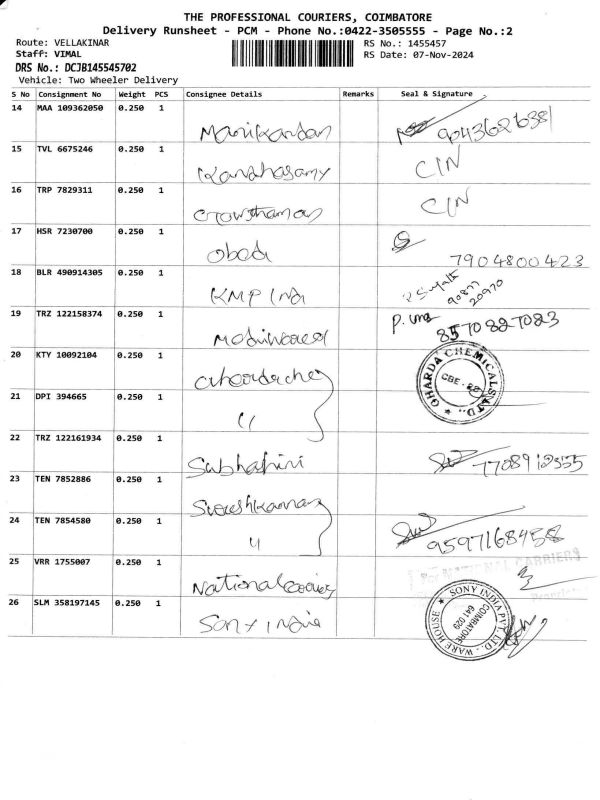 THE PROFESSIONAL COURIERS, COIMBATORE
Delivery Runsheet - PCM - Phone No.:0422-3505555 - Page No.:2
Route: VELLAKINAR
RS No.: 1455457
Staff: VIMAL
RS Date: 07-Nov-2024
DRS No.: DCJB145545702
Vehicle: Two Wheeler Delivery
S No Consignment No Weight PCS Consignee Details Remarks Seal & Signature
14 MAA 109362050 0.250 1
Manikandan 9043626381
15 TVL 6675246 0.250 1
Kandhasamy CIN
16 TRP 7829311 0.250 1
Gowthaman CIN
17 HSR 7230700 0.250 1
Obedi 7904800423
18 BLR 490914305 0.250 1
KMP Ind 90877
20970
19 TRZ 122158374 0.250 1
P. uma
8570887083
20 KTY 10092104 0.250 1
GHARDA CHEMICALS LTD.,
CBE -
21 DPI 394665 0.250 1
"
22 TRZ 122161934 0.250 1
Subhashini 7708912355
23 TEN 7852886 0.250 1
Sureshkumar
24 TEN 7854580 0.250 1
" 9597168458
25 VRR 1755007 0.250 1
For NATIONAL CARRIERS
National Carriers
Proprietor
26 SLM 358197145 0.250 1
Sony India
SONY INDIA PVT. LTD., WARE HOUSE
COIMBATORE
641 029